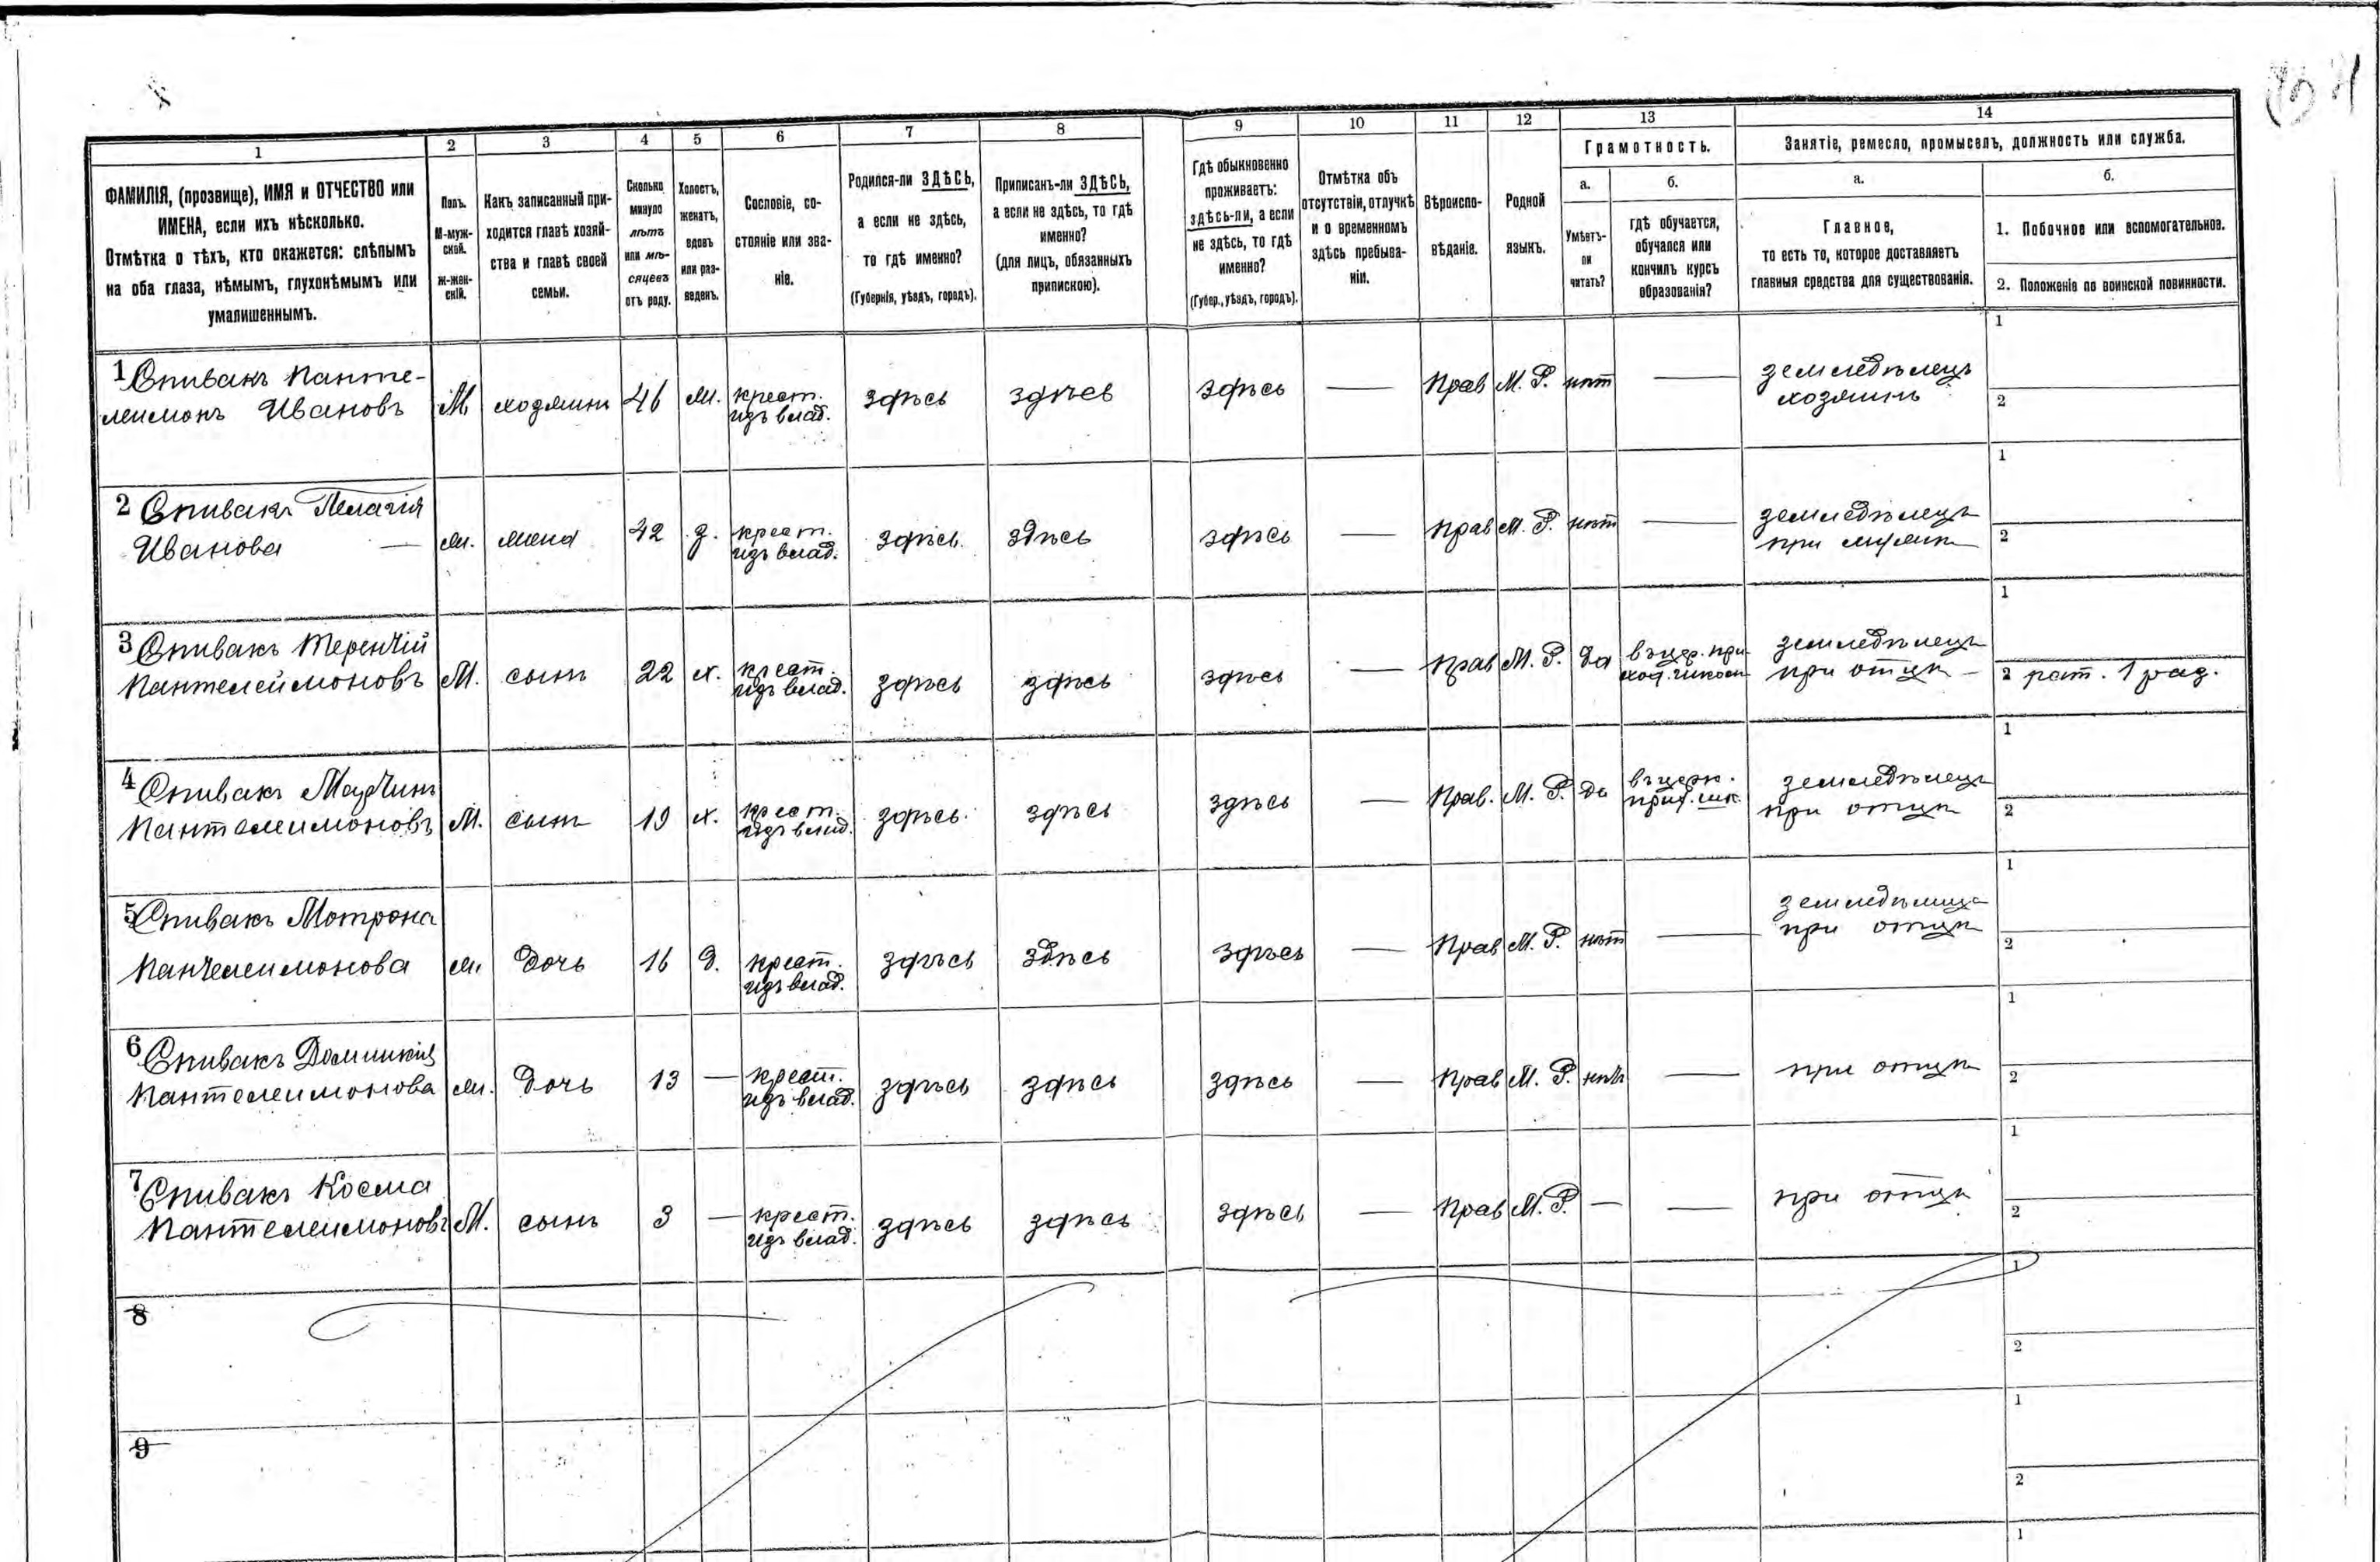 1 2 3 4 5 6 7 8 9 10 11 12 13 14
ФАМИЛІЯ, (прозвище), ИМЯ и ОТЧЕСТВО или
ИМЕНА, если ихъ нѣсколько.
Отмѣтка о тѣхъ, кто окажется: слѣпымъ
на оба глаза, нѣмымъ, глухонѣмымъ или
умалишеннымъ.
Полъ.
М-муж-
ской.
Ж-жен-
скій.
Какъ записанный при-
ходится главѣ хозяй-
ства и главѣ своей
семьи.
Сколько
минуло
лѣтъ
или мѣ-
сяцевъ
отъ роду.
Холостъ,
женатъ,
вдовъ
или раз-
веденъ.
Сословіе, со-
стояніе или зва-
ніе.
Родился-ли ЗДѢСЬ,
а если не здѣсь,
то гдѣ именно?
(Губернія, уѣздъ, городъ).
Приписанъ-ли ЗДѢСЬ,
а если не здѣсь, то гдѣ
именно?
(для лицъ, обязанныхъ
припискою).
Гдѣ обыкновенно
проживаетъ:
здѣсь-ли, а если
не здѣсь, то гдѣ
именно?
(Губер., уѣздъ, городъ).
Отмѣтка объ
отсутствіи, отлучкѣ
и о временномъ
здѣсь пребыва-
ніи.
Вѣроиспо-
вѣданіе.
Родной
языкъ.
Грамотность.
а.
Умѣетъ-
ли
читать?
б.
гдѣ обучается,
обучался или
кончилъ курсъ
образованія?
Занятіе, ремесло, промыселъ, должность или служба.
а.
Главное,
то есть то, которое доставляетъ
главныя средства для существованія.
б.
1. Побочное или вспомогательное.
2. Положеніе по воинской повинности.
1 Спивакъ Панте-
леимонъ Ивановъ М хозяинъ 46 ж. крест.
изъ влад. здѣсь здѣсь здѣсь — Прав М. Р. нѣт — земледѣлецъ
хозяинъ 1
2
2 Спивакъ Пелагія
Иванова — ж. жена 42 з. крест.
изъ влад. здѣсь здѣсь здѣсь — прав М. Р. нѣт — земледѣлецъ
при мужѣ 1
2
3 Спивакъ Терентій
Пантелеймоновъ М. сынъ 22 х. крест.
изъ влад. здѣсь здѣсь здѣсь — прав М. Р. да въ цер. при-
ход. школѣ земледѣлецъ
при отцѣ — 1
2 рат. 1 раз.
4 Спивакъ Мартинъ
Пантелеимоновъ М. сынъ 19 х. крест.
изъ влад. здѣсь здѣсь здѣсь — Прав. М. Р. да въ церк.
прих. шк. земледѣлецъ
при отцѣ 1
2
5 Спивакъ Мотрона
Пантелеимонова ж. дочь 16 д. крест.
изъ влад. здѣсь здѣсь здѣсь — Прав М. Р. нѣт — земледѣлица
при отцѣ 1
2
6 Спивакъ Доминикія
Пантелеимонова ж. дочь 13 — крест.
изъ влад. здѣсь здѣсь здѣсь — прав М. Р. нѣтъ — при отцѣ 1
2
7 Спивакъ Косма
Пантелеимоновъ М. сынъ 3 — крест.
изъ влад. здѣсь здѣсь здѣсь — Прав М. Р. — — при отцѣ 1
2
8 1
2
9 1
2
1